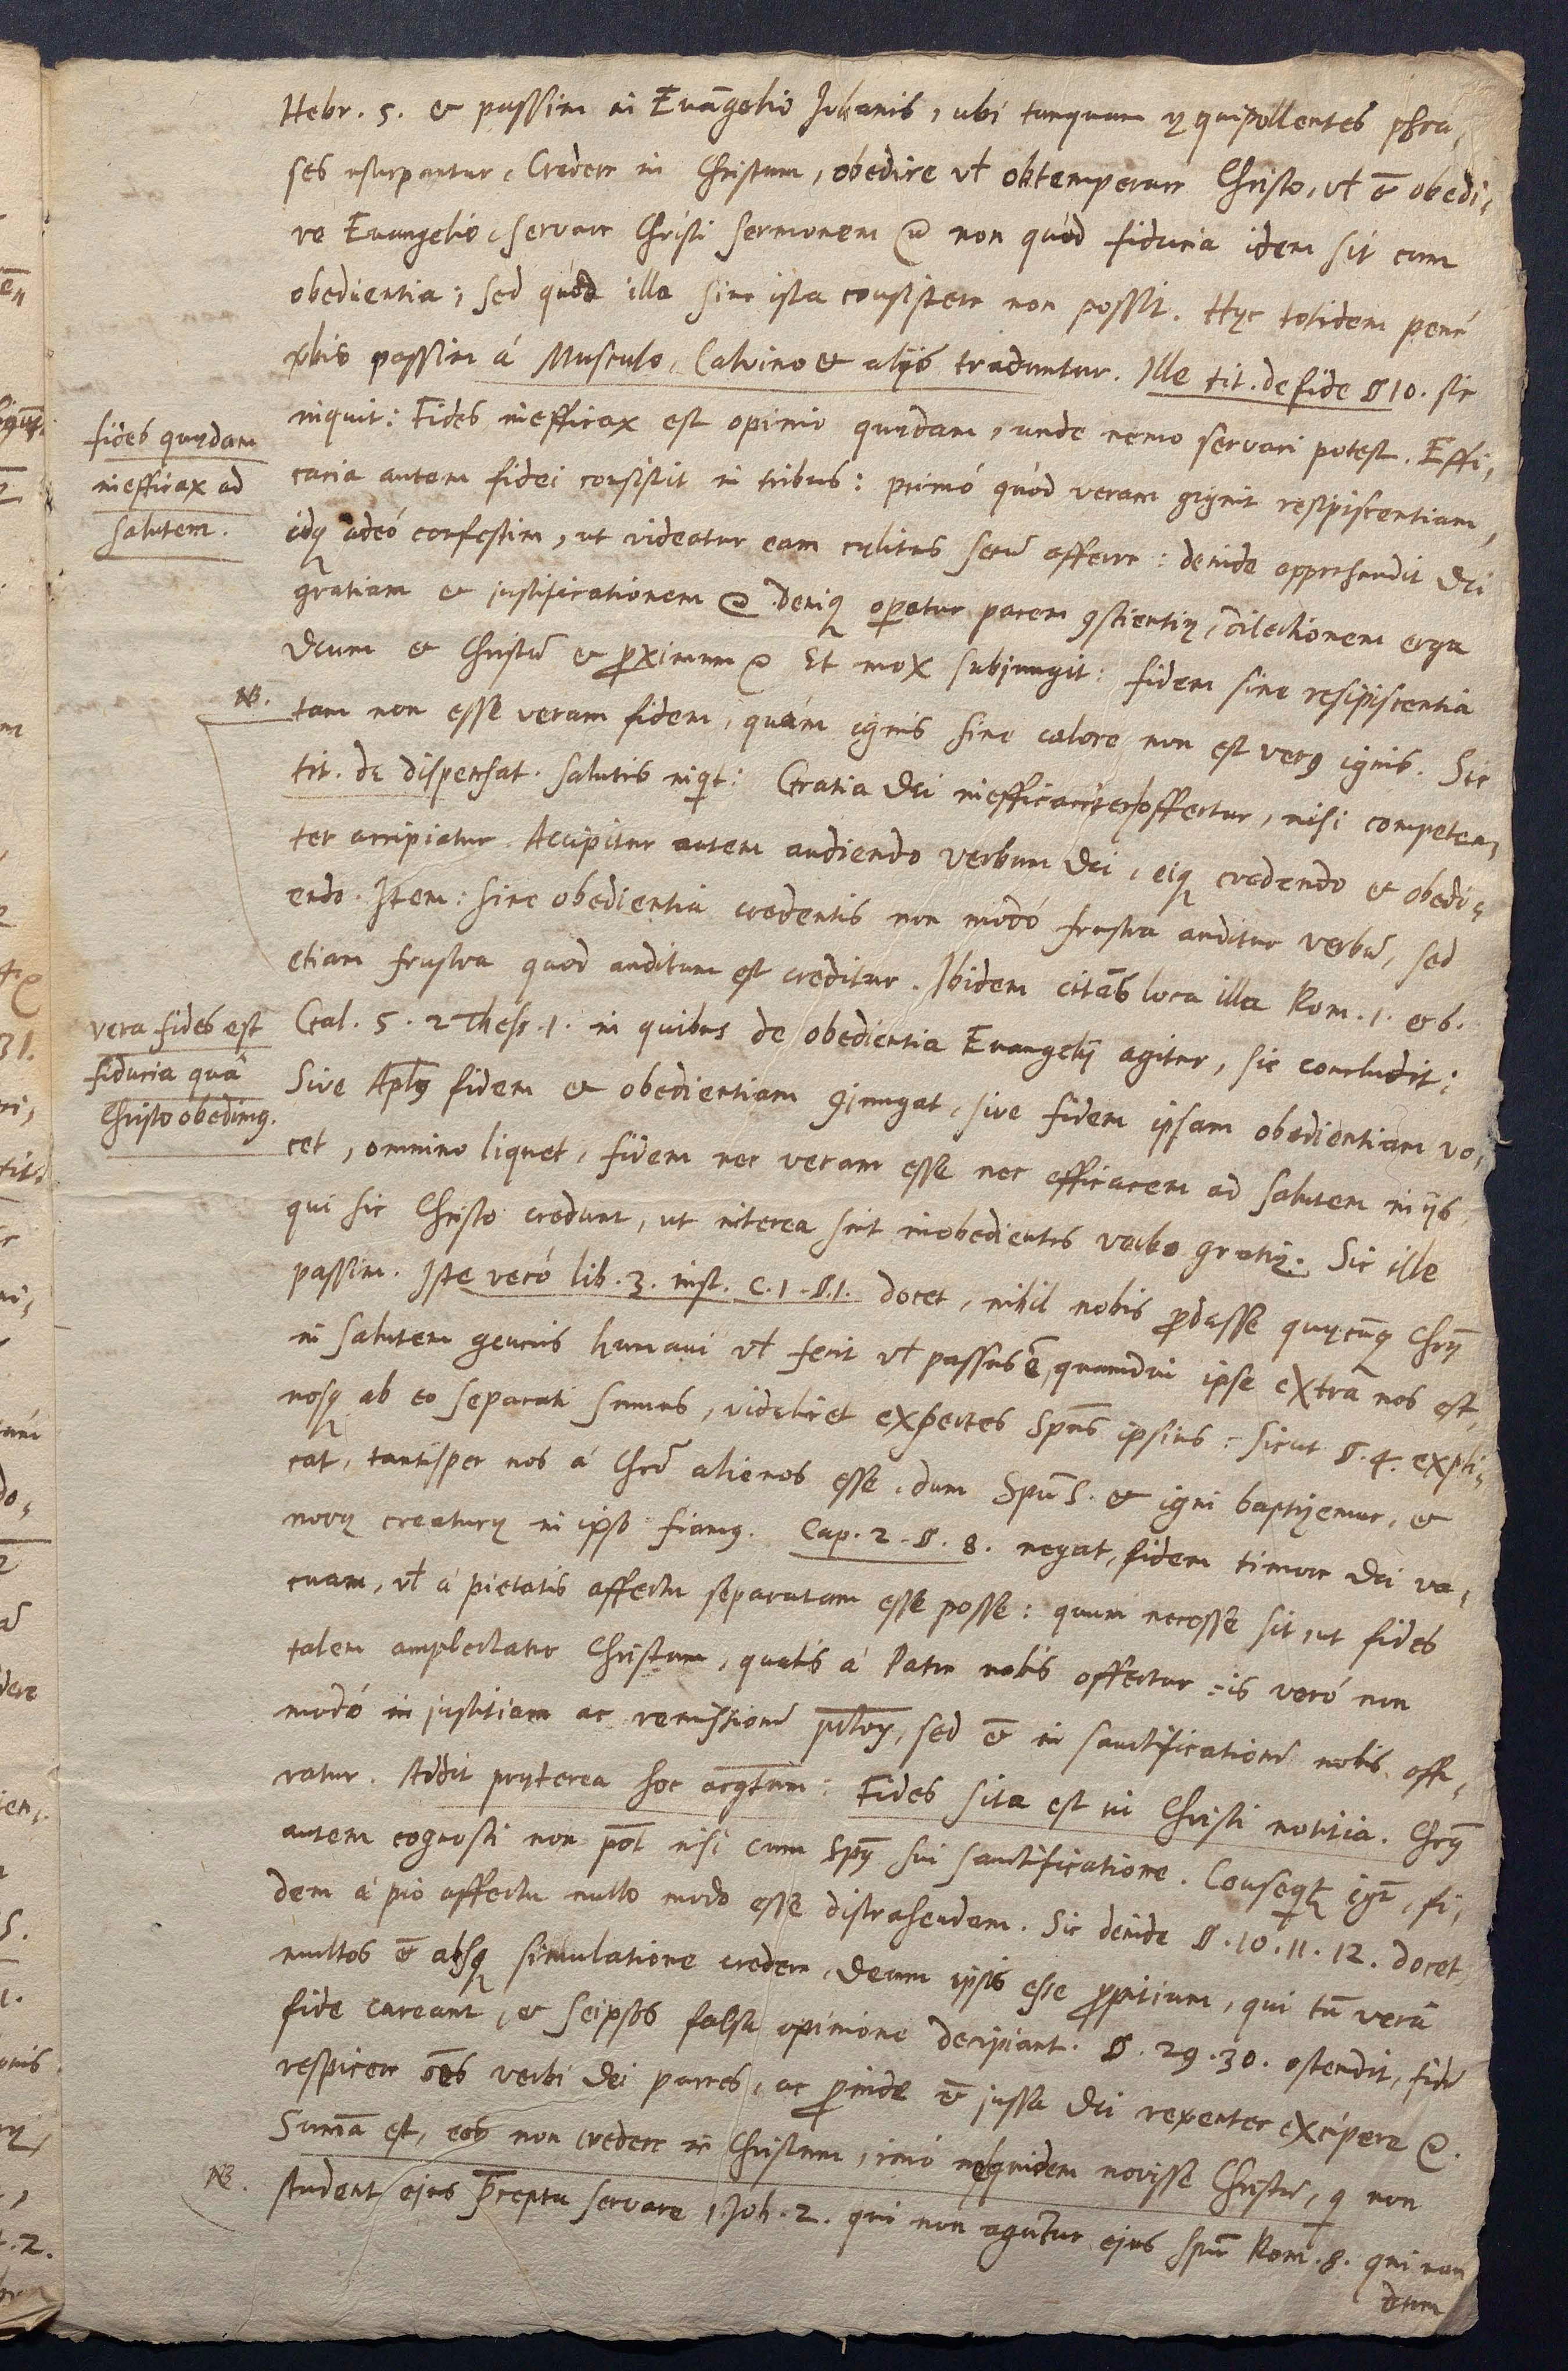 Hebr. 5. & passim in Evāgelio Johanis, ubi tanquam ęquipollentes phra-
ses usurpantur, Credere in Christum, obedire vł obtemperare Christo, vł ē obedi-
re Evangelio, servare Christi sermonem &c non quòd fiducia idem sit cum
obedientia, sed quòd illa sine ista consistere non possit. Hęc totidem penè
v̄bis passim à Musculo, Calvino & alijs traduntur. Ille tit. de fide § 10. sic
fides quędam
inefficax ad
salutem.
inquit: Fides inefficax est opinio quędam, unde nemo servari potest. Effi-
cacia autem fidei consistit in tribus: primò quòd veram gignit resipiscentiam,
idq adeò confestim, ut videatur eam cęlitus secū afferre: deinde apprehendit Dei
gratiam & justificationem &c deniq opatur pacem 9scientię, dilectionem erga
Deum & Christū & proximum &c Et mox subjungit: fidem sine resipiscentia
NB.
tam non esse veram fidem, quàm ignis sine calore non est ver9 ignis. Sic
tit. de dispensat. salutis inqt: Gratia Dei inefficaciter offertur, nisi competen-
ter accipiatur. Accipitur autem audiendo verbum Dei, eiq credendo & obedi-
endo. Item: sine obedientia credentis non modò frustra auditur verbū, sed
etiam frustra quod auditum est creditur. Ibidem citās loca illa Rom. 1. & 6.
vera fides est
fiducia quâ
Christo obedim9.
Gal. 5. 2 Thess. 1. in quibus de obedientia Evangelij agitur, sic concludit:
Sive Apl9 fidem & obedientiam 9jungat, sive fidem ipsam obedientiam vo-
cet, omnino liquet, fidem nec veram esse nec efficacem ad salutem in ijs,
qui sic Christo credunt, ut interea sint inobedientes verbo gratię. Sic ille
passim. Iste verò lib. 3. inst. c. 1. §. 1. docet, nihil nobis prodesse quęcūq Chr9
in salutem generis humani vł fecit vł passus ē, quamdiu ipse extra nos est,
nosq ab eo separati sumus, videlicet expertes Sp̄us ipsius: sicut §. 4. expli-
cat, tantisper nos à Chrō alienos esse, dum Spū S. & igni baptizemur, &
novę creaturę in ipso fiam9. Cap. 2. §. 8. negat, fidem timore Dei va-
cuam, vł à pietatis affectu separatam esse posse: quum necesse sit, ut fides
talem amplectatur Christum, qualis à Patre nobis offertur: is verò non
modò in justitiam ac remissionē pctorum, sed ē in sanctificationē nobis offe-
ratur. Addit pręterea hoc argtum: Fides sita est in Christi notitia. Chr9
autem cognosci non pot nisi cum Sp9 sui sanctificatione. Conseqt igr, fi-
dem à pio affectu nullo modo esse distrahendam. Sic deinde §. 10. 11. 12. docet
multos ē absq simulatione credere, Deum ipsis esse propitium, qui tn̄ verâ
fide careant, & seipsos falsa opinione decipiant. §. 29. 30. ostendit, fidē
respicere oēs verbi Dei partes, ac proinde ē jussa Dei reverenter excipere &c.
Summa est, eos non credere in Christum, imò ne quidem novisse Christū, q non
NB.
student ejus prcepta servare 1. Joh. 2. qui non aguntur ejus spū Rom. 8. qui non
dum